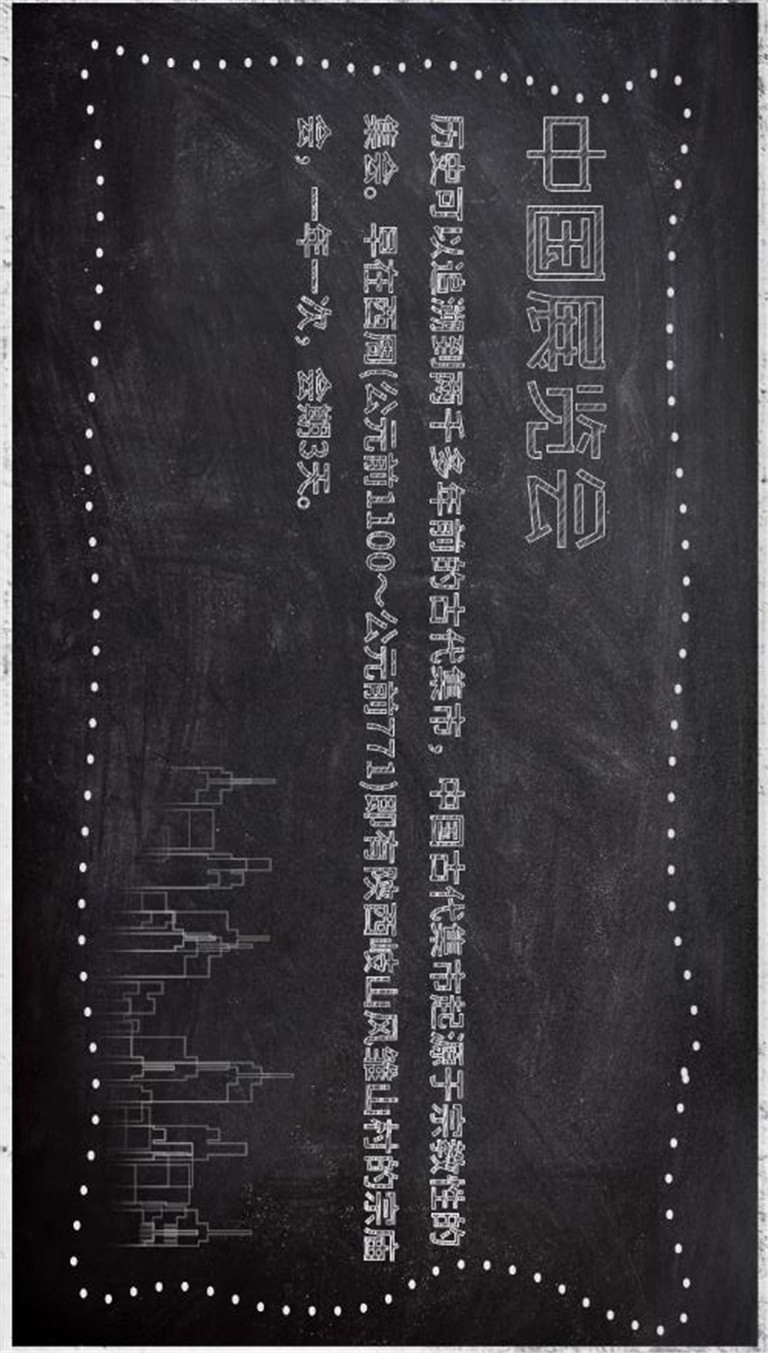 中国展览会
历史可以追溯到两千多年前的古代集市，中国古代集市起源于宗教性的
集会。早在西周(公元前1100～公元前771)即有陕西岐山风雏山村的宗庙
会，一年一次，会期3天。